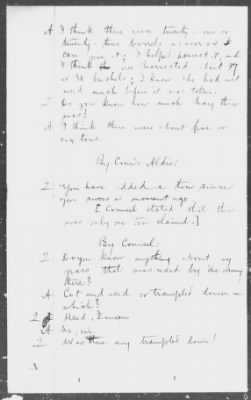 A I think there were twenty-one or
twenty-two barrels as near as I
can give it; I helped harvest it, and
I think we harvested but 37
or 38 bushels; I know she had not
used much before it was taken.
Q Do you know how much hay there
was?
A I think there were about five or
six tons.
By Com'r Aldis:
Q You have added a ton since
you swore a moment ago
[Counsel stated that there
was only one ton claimed.]
By Counsel:
Q Do you know anything about any
grass that was used by the army
there?
A Cut and used or trampled down—
which?
Q Used, I mean
A No, sir.
Q Was there any trampled down?